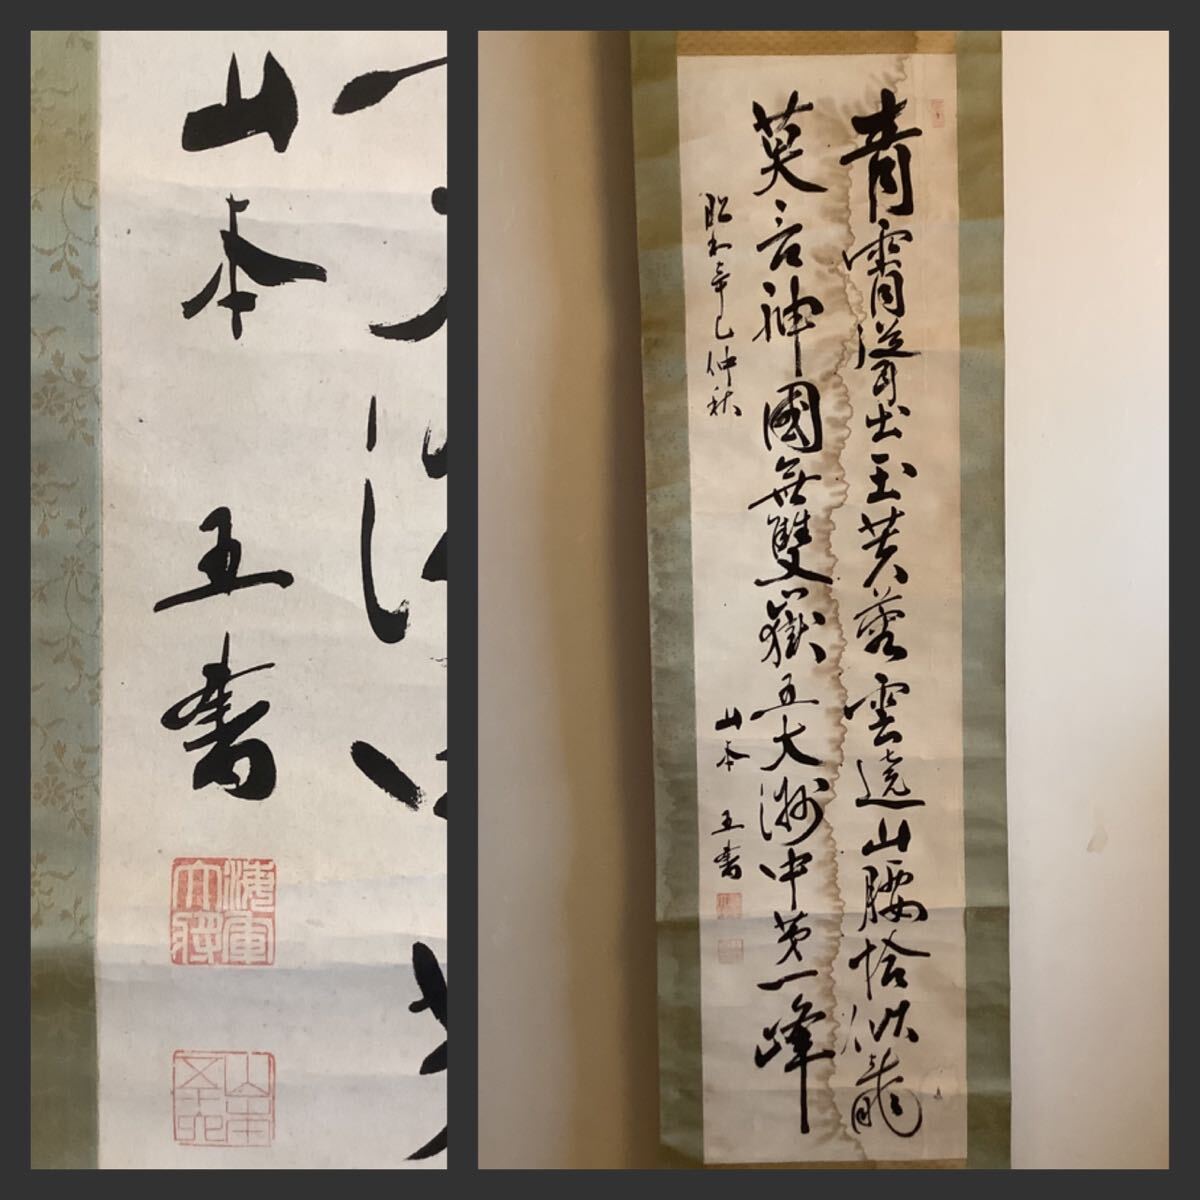 山本 五書
海軍大將
山本五十六
青霄聳出玉芙蓉雲遶山腰恰似龍
莫言神國無雙嶽五大洲中第一峰
昭和辛巳仲秋
山本 五書